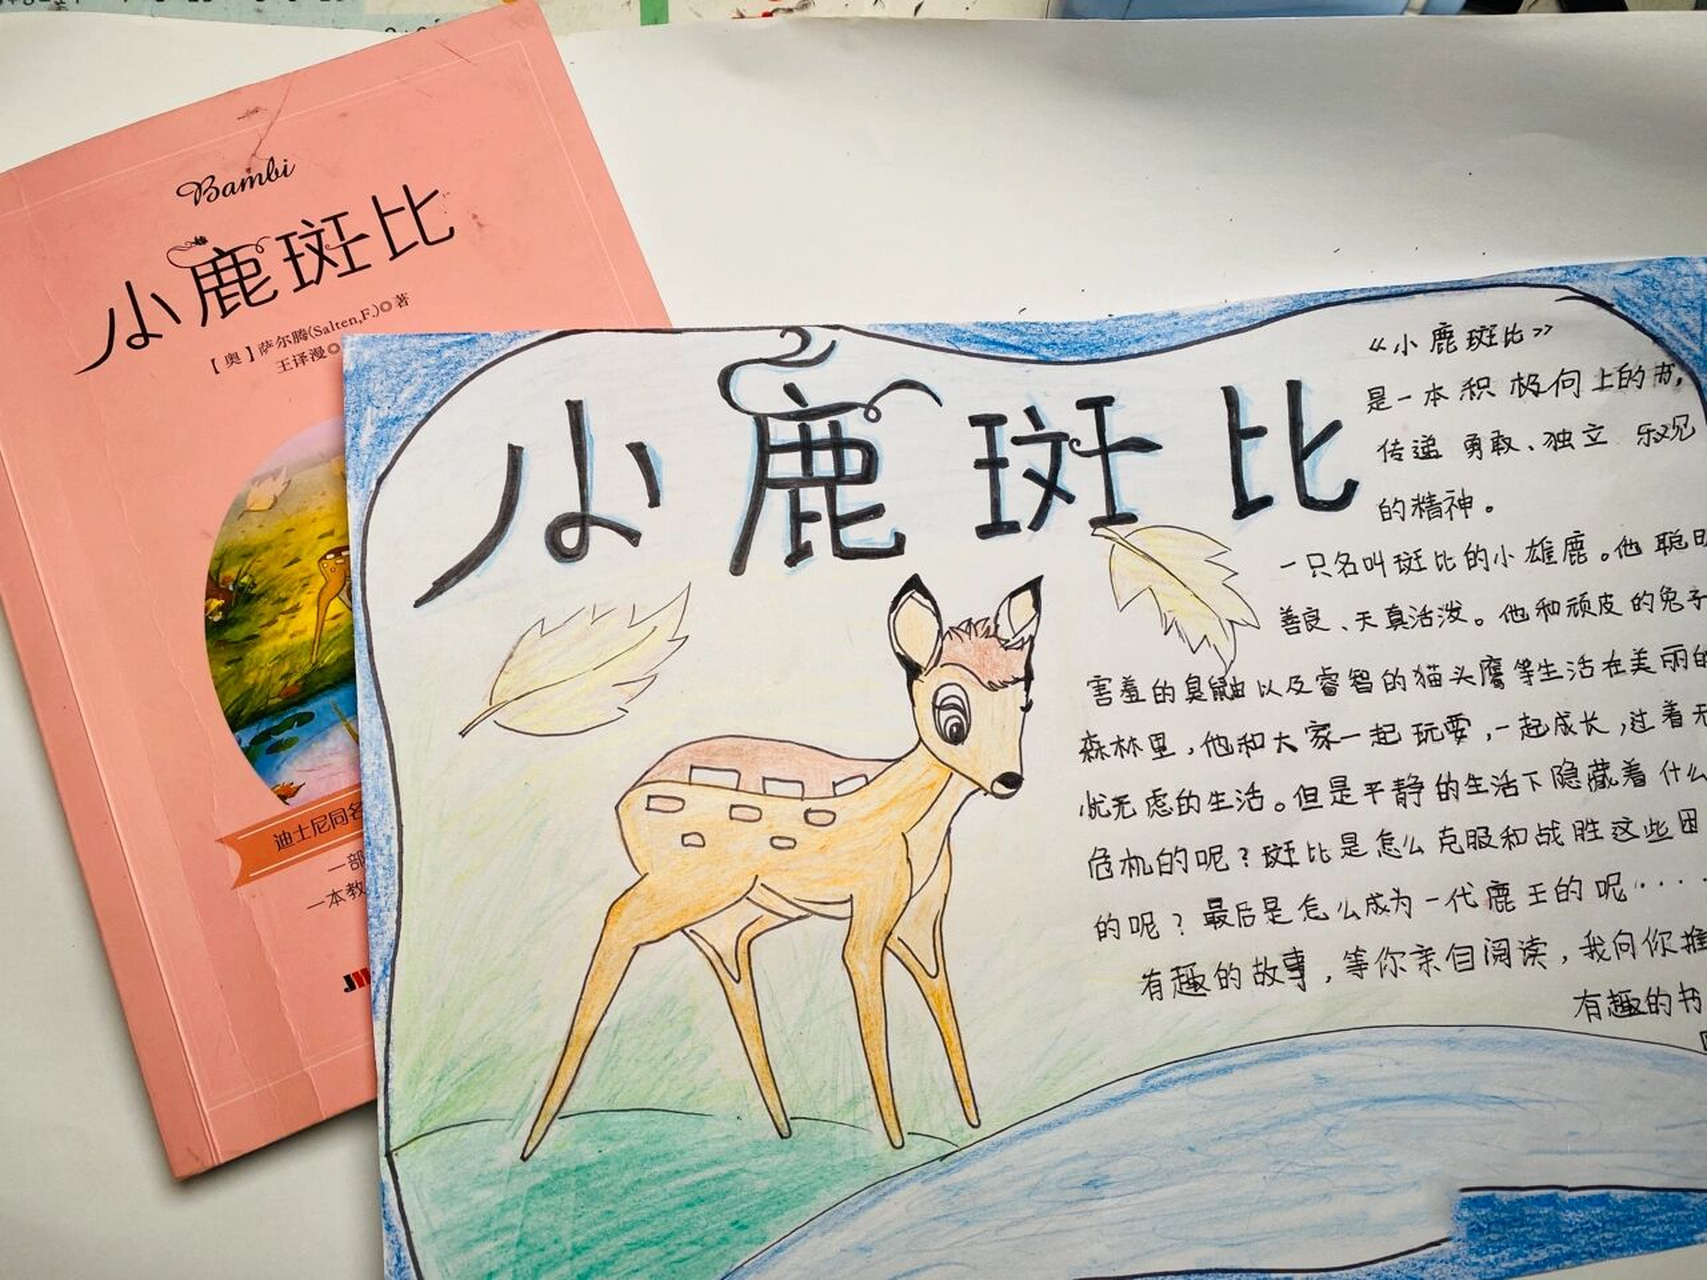 Bambi
小鹿斑比
【奥】萨尔腾(Salten,F.)◎著
王译漫◎
迪士尼同名
一部
一本教
小鹿斑比
《小鹿斑比》
是一本积极向上的书,
传递勇敢、独立 乐观
的精神。
一只名叫斑比的小雄鹿。他聪
善良、天真活泼。他和顽皮的兔子
害羞的臭鼬以及睿智的猫头鹰等生活在美丽的
森林里,他和大家一起玩耍,一起成长,过着无
忧无虑的生活。但是平静的生活下隐藏着什么
危机的呢?斑比是怎么克服和战胜这些困
的呢?最后是怎么成为一代鹿王的呢·····
有趣的故事,等你亲自阅读,我向你推
有趣的书